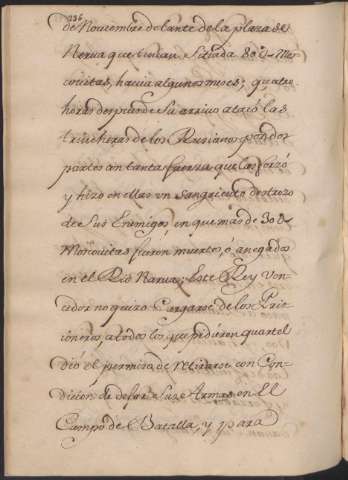 336
de Noviembre delante de la plaza de
Nerva que tenian Sitiada 80 U Mos
covitas, havia algunos meses; quatro
horas despues de Su arrivo atacó las
trincheras de los Rusianos por dos
partes con tanta fuerza que las forzó
y hizo en ellas un Sangriento destrozo
de Sus Enemigos en que mas de 30 U
Moscovitas fueron muertos, ó anegados
en el Rio Narva; Este Rey Ven-
cedor no quizo Cargarse de los Pris
ioneros, a todos los que pidieron quartel
dio el permiso de retirarse con Con-
dicion de dejar Sus Armas en El
Campo de Batalla, y para